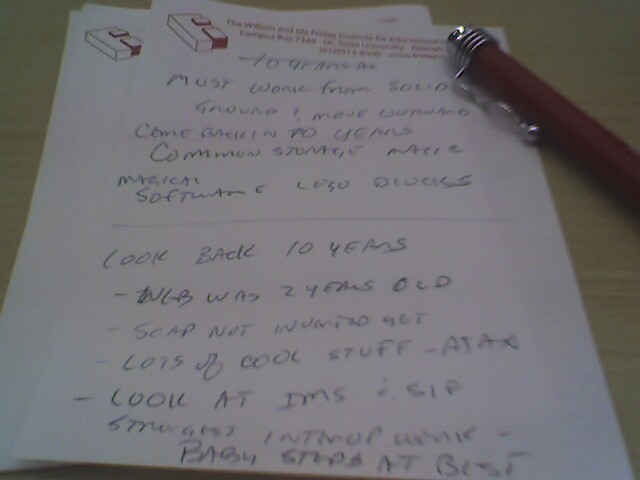 The William and Ida Friday Institute for Educational
Campus Box 7249 · NC State University · Raleigh
(919)513-8500 · www.friday
10 YEARS AG
MUST WORK FROM SOLID
GROUND & MOVE OUTWARD
COME BACK IN 10 YEARS
COMMON STORAGE MAGIC
MAGICAL
SOFTWARE LEGO BLOCKS
LOOK BACK 10 YEARS
- WEB WAS 2 YEARS OLD
- SOAP NOT INVENTED YET
- LOTS of COOL STUFF - AJAX
- LOOK AT IMS & SIF
STRONGEST INTEROP WORK -
BABY STEPS AT BEST